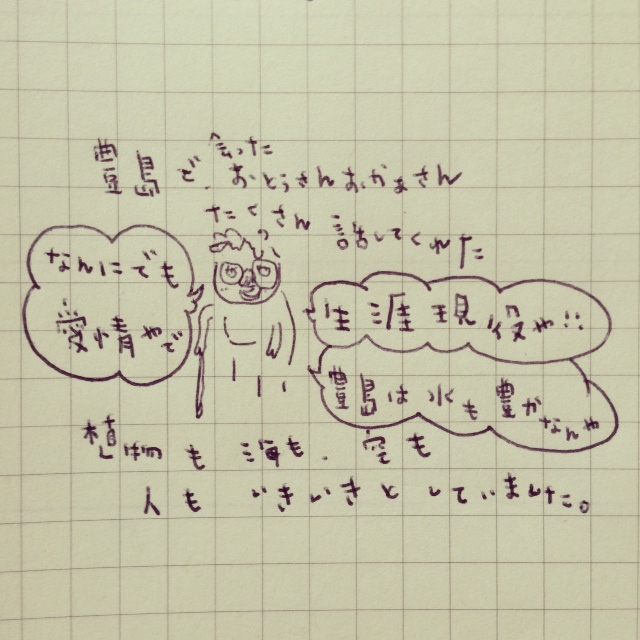 豊島で会った
おとうさんおかあさん
たくさん話してくれた
なんにでも
愛情やで
生涯現役や!!
豊島は水も豊かなんや
植物も海も、空も
人もいきいきとしていました。